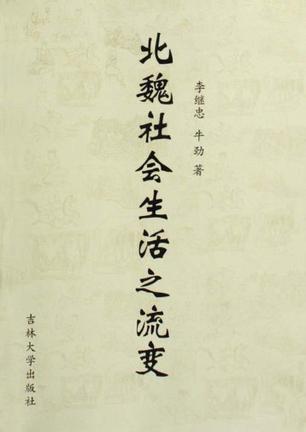 李继忠 牛劲 著
北魏社会生活之流变
吉林大学出版社